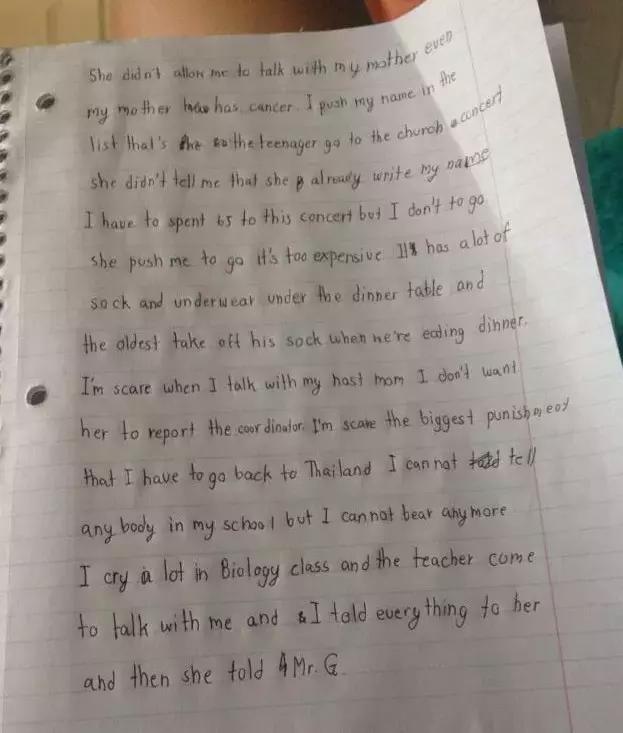 She didn't allow me to talk with my mother even
my mother has cancer. I push my name in the
list that's the teenager go to the church concert
she didn't tell me that she already write my name
I have to spent 65 to this concert but I don't to go
she push me to go it's too expensive. It has a lot of
sock and underwear under the dinner table and
the oldest take off his sock when we're eating dinner.
I'm scare when I talk with my host mom I don't want
her to report the coordinator. I'm scare the biggest punishment
that I have to go back to Thailand I cannot tell
any body in my school but I cannot bear anymore
I cry a lot in Biology class and the teacher come
to talk with me and I told everything to her
and then she told Mr. G.